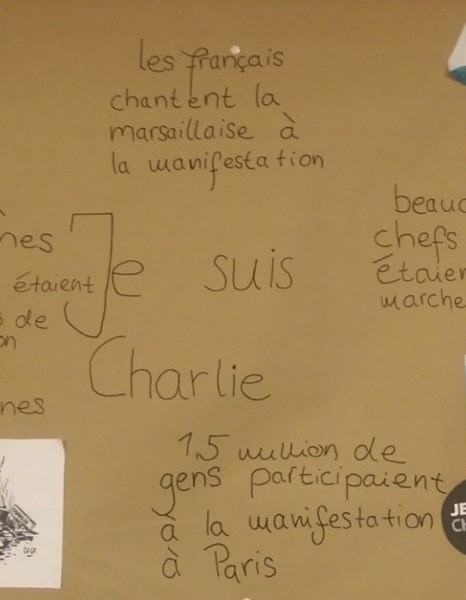 les français
chantent la
marsaillaise à
la manifestation
nes
étaient
de
on
nes
Je suis
Charlie
beauc
chefs
étaien
marche
1,5 million de
gens participaient
à la manifestation
à Paris
JE
CH